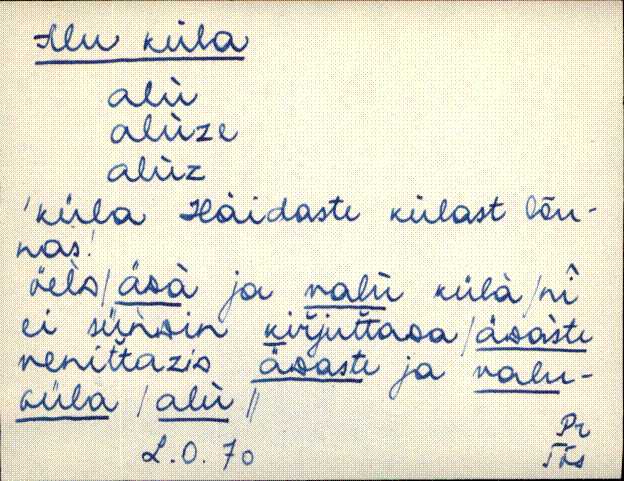 Alu küla
alù
alùze
alùz
'küla Häidaste külast lõu-
nas!
öèls/äsà ja valù külà/nî
ei sünnsin kirjuttasa/äsaste
venittazis äsaste ja valu-
küla /alù //
L.O. 70
Pr
Tõs